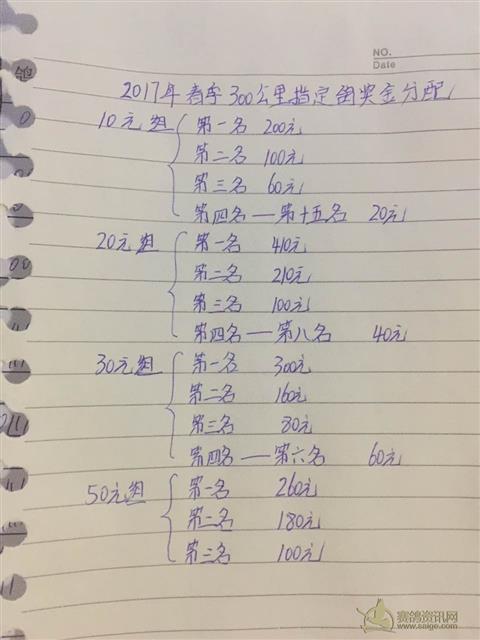 NO.
Date
2017年春季300公里指定鸽奖金分配
10元组 第一名 200元
第二名 100元
第三名 60元
第四名—第十五名 20元
20元组 第一名 410元
第二名 210元
第三名 100元
第四名—第八名 40元
30元组 第一名 300元
第二名 160元
第三名 80元
第四名—第六名 60元
50元组 第一名 260元
第二名 180元
第三名 100元
赛鸽资讯网
www.saige.com